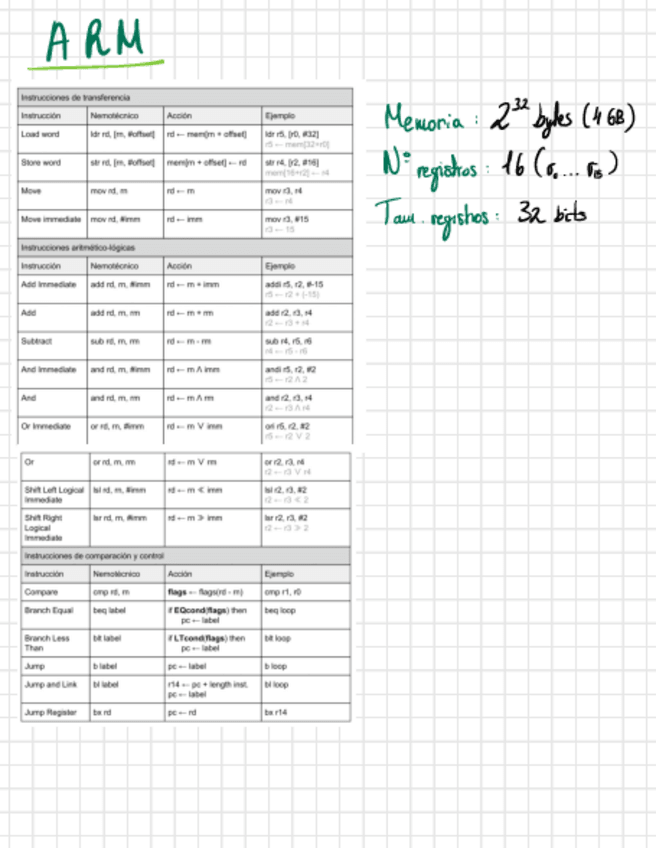 ARM
Memoria: 2^32 bytes (4 GB)
Nº registros: 16 (r0 ... r15)
Tam. registros: 32 bits
Instrucciones de transferencia
Instrucción Nemotécnico Acción Ejemplo
Load word ldr rd, [rn, #offset] rd ← mem[rn + offset] ldr r5, [r0, #32]
r5 ← mem[32+r0]
Store word str rd, [rn, #offset] mem[rn + offset] ← rd str r4, [r2, #16]
mem[16+r2] ← r4
Move mov rd, rn rd ← rn mov r3, r4
r3 ← r4
Move immediate mov rd, #imm rd ← imm mov r3, #15
r3 ← 15
Instrucciones aritmético-lógicas
Instrucción Nemotécnico Acción Ejemplo
Add Immediate add rd, rn, #imm rd ← rn + imm addi r5, r2, #-15
r5 ← r2 + (-15)
Add add rd, rn, rm rd ← rn + rm add r2, r3, r4
r2 ← r3 + r4
Subtract sub rd, rn, rm rd ← rn - rm sub r4, r5, r6
r4 ← r5 - r6
And Immediate and rd, rn, #imm rd ← rn Λ imm andi r5, r2, #2
r5 ← r2 Λ 2
And and rd, rn, rm rd ← rn Λ rm and r2, r3, r4
r2 ← r3 Λ r4
Or Immediate or rd, rn, #imm rd ← rn V imm ori r5, r2, #2
r5 ← r2 V 2
Or or rd, rn, rm rd ← rn V rm or r2, r3, r4
r2 ← r3 V r4
Shift Left Logical lsl rd, rn, #imm rd ← rn ≪ imm lsl r2, r3, #2
Immediate r2 ← r3 ≪ 2
Shift Right lsr rd, rn, #imm rd ← rn ≫ imm lsr r2, r3, #2
Logical r2 ← r3 ≫ 2
Immediate
Instrucciones de comparación y control
Instrucción Nemotécnico Acción Ejemplo
Compare cmp rd, rn flags ← flags(rd - rn) cmp r1, r0
Branch Equal beq label if EQcond(flags) then beq loop
pc ← label
Branch Less blt label if LTcond(flags) then blt loop
Than pc ← label
Jump b label pc ← label b loop
Jump and Link bl label r14 ← pc + length inst. bl loop
pc ← label
Jump Register bx rd pc ← rd bx r14